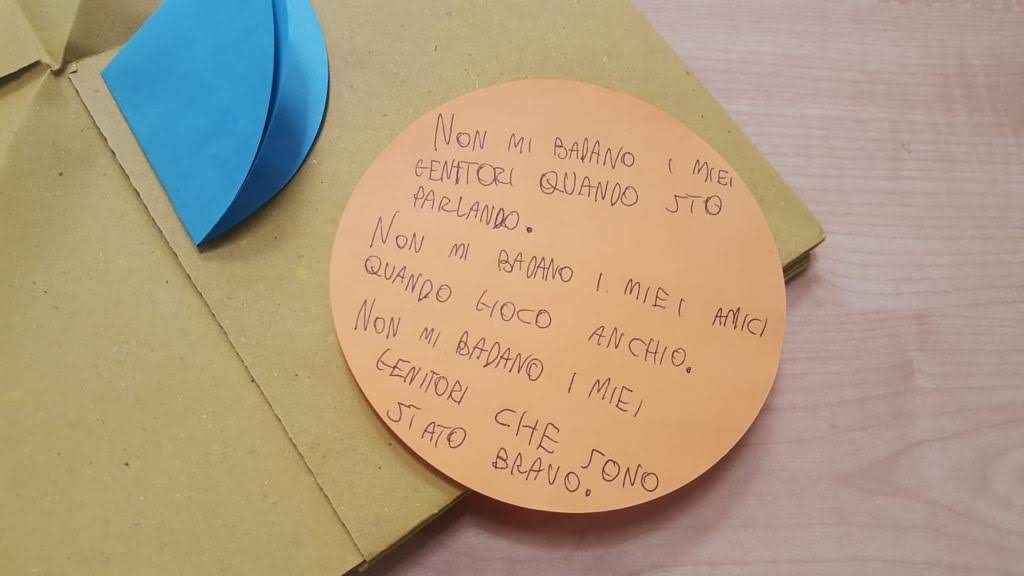 NON MI BADANO I MIEI
GENITORI QUANDO STO
PARLANDO.
NON MI BADANO I MIEI AMICI
QUANDO GIOCO ANCHIO.
NON MI BADANO I MIEI
GENITORI CHE SONO
STATO BRAVO.